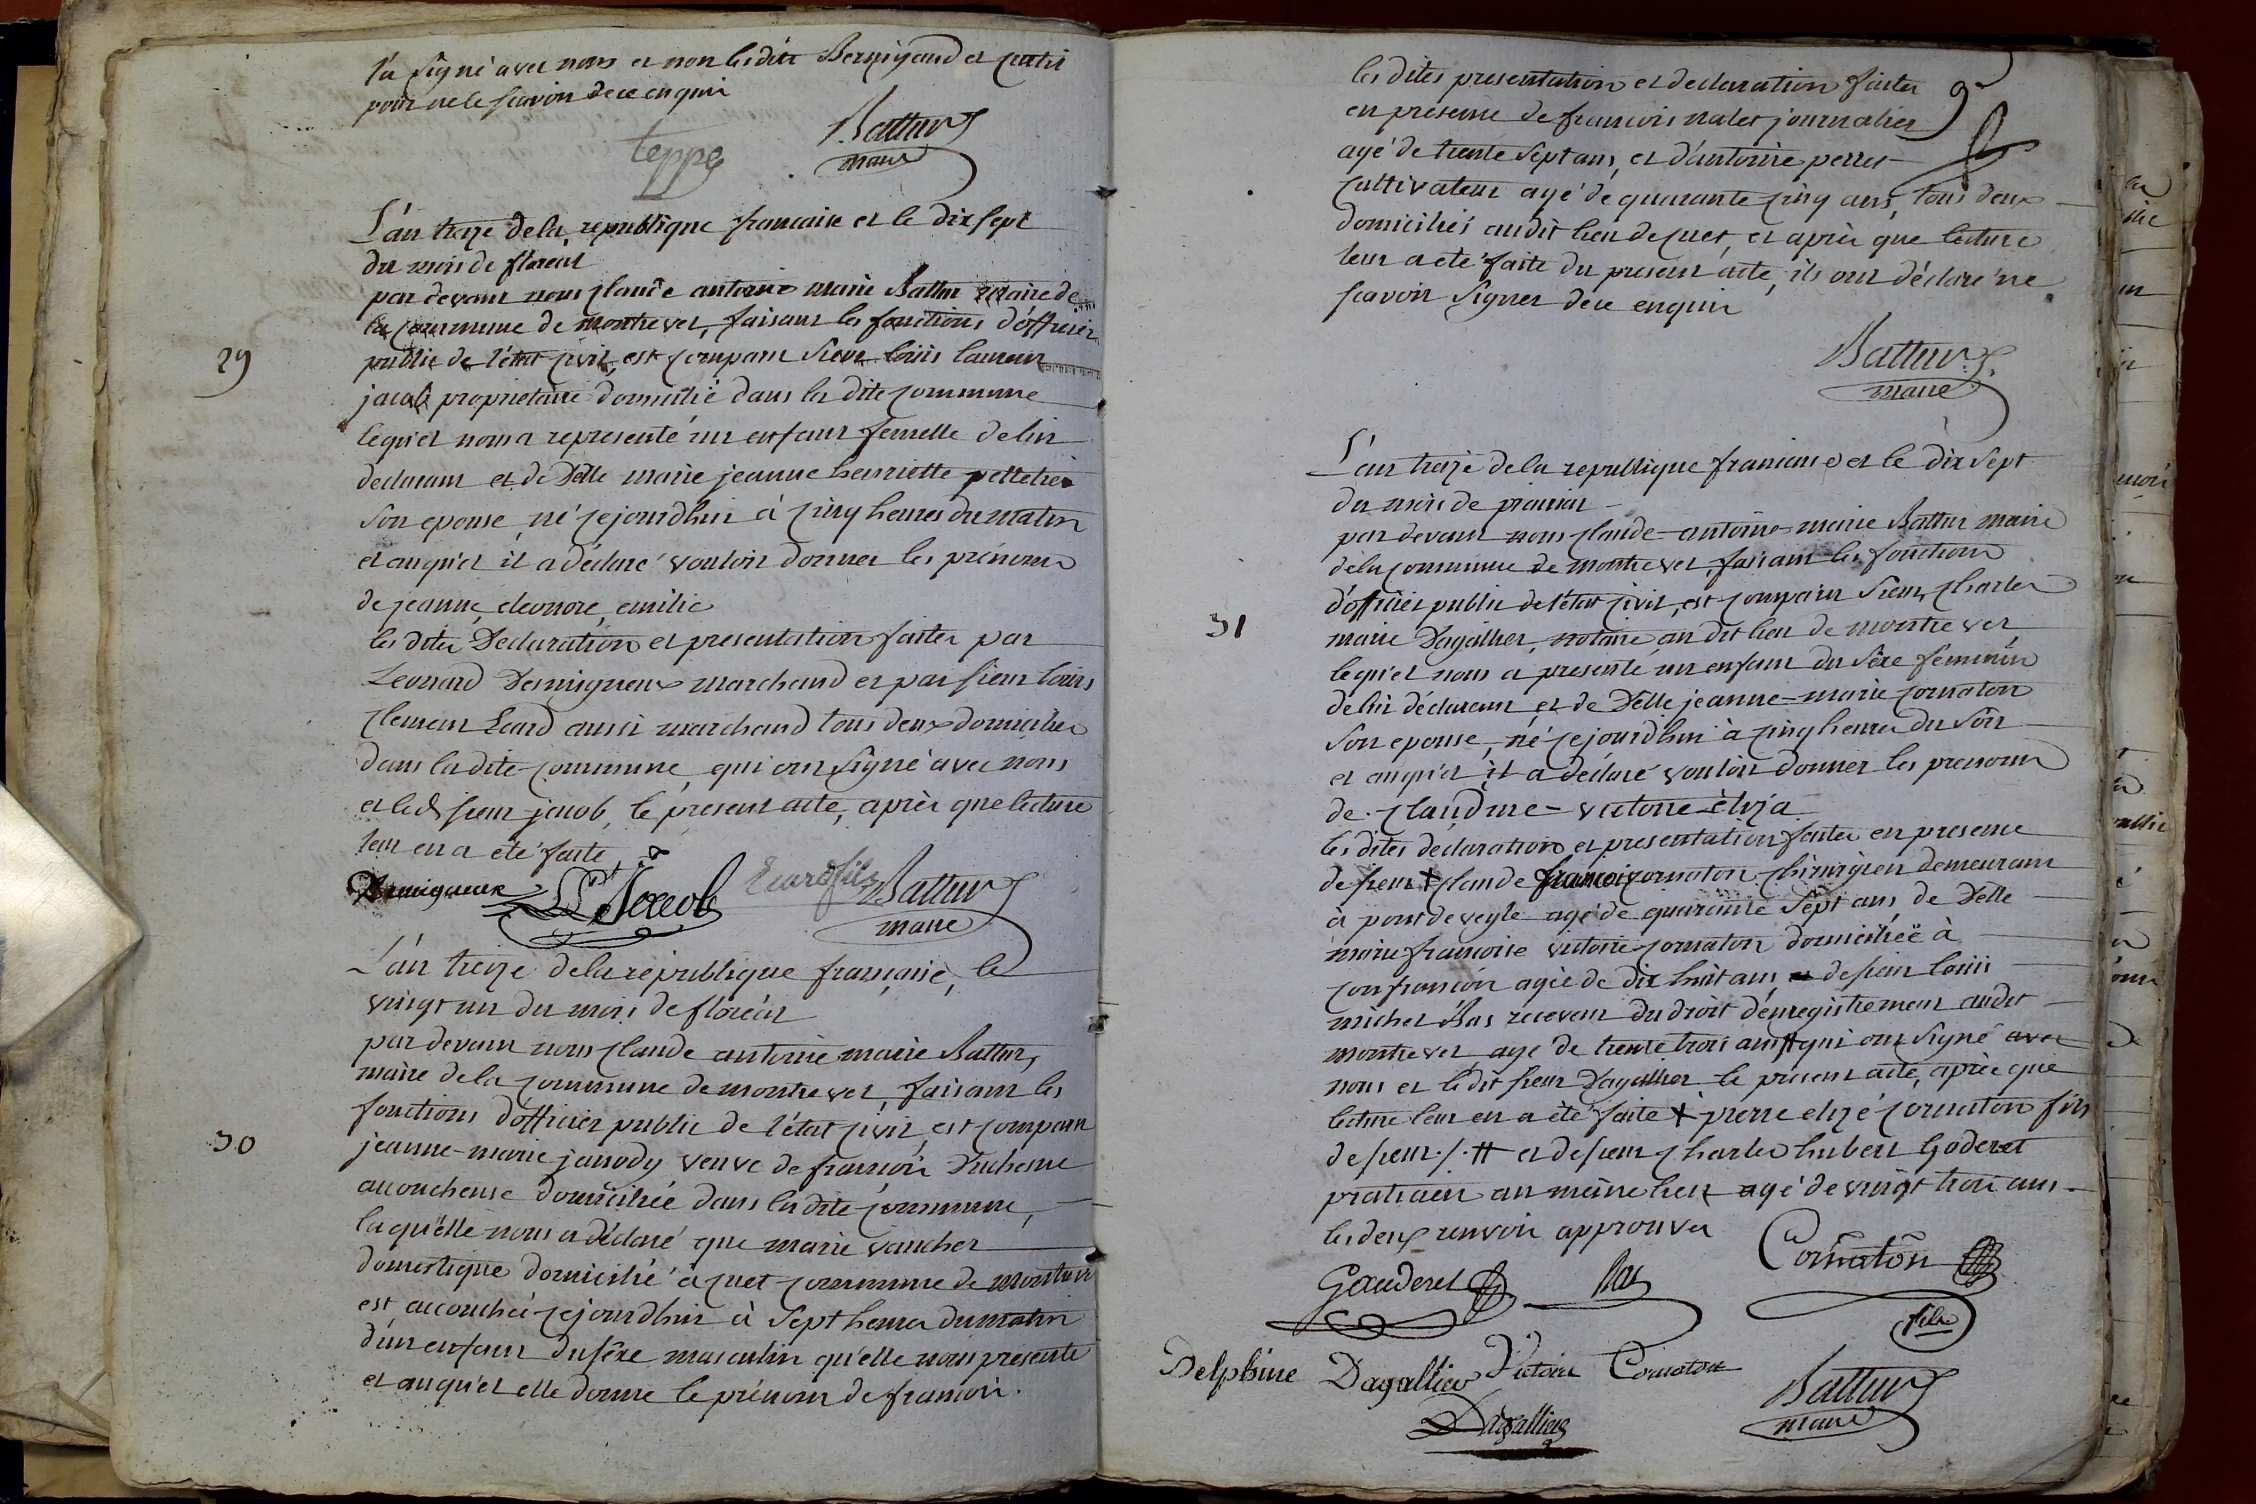 l'a signé avec nous et non lesdits Bernigaud et
pour ne le scavoir de ce enquis
teppe
Battur
maire
L'an treize de la republique francaise et le dix sept
du mois de floreal
par devant nous claude antoine marie Battur maire de
la commune de montrevel, faisant les fonctions d'officier
public de l'état civil, est comparu sieur louis laurent
29
jacob proprietaire domicilié dans la dite commune
lequel nous a representé un enfant femelle de lui
declarant et de delle marie jeanne henriette pelletier
son epouse, né cejourdhui à cinq heures du matin
et auquel il a déclaré vouloir donner les prénoms
de jeanne, eleonore, emilie
les dites Declaration et presentation faites par
Leonard Demigneux marchand et par sieur louis
clement Ecard aussi marchand tous deux domiciliés
dans la dite commune, qui ont signé avec nous
et led sieur jacob, le present acte, après que lecture
leur en a eté faite
Demigneux
Lt Jacob
Ecard fils
Battur
maire
L'an treize de la republique française, le
vingt un du mois de floréal
par devant nous claude antoine marie Battur,
maire de la commune de montrevel, faisant les
fonctions d'officier public de l'état civil, est comparu
30
jeanne-marie janody veuve de françois Duchesne
accoucheuse domiciliée dans la dite commune,
laquelle nous a déclaré que marie vaucher
domestique domicilié à cuet commune de montrevel
est accouchée cejourdhui à sept heures du matin
d'un enfant du sexe masculin qu'elle nous presente
et auquel elle donne le prénom de francois.
les dites presentation et declaration faites
en presence de francois nalet journalier
agé de trente sept ans, et d'antoine perret
cultivateur agé de quarante cinq ans, tous deux
domiciliés audit lieu de cuet, et après que lecture
leur a eté faite du present acte, ils ont déclaré ne
scavoir signer de ce enquis
Battur
maire
L'an treize de la republique francaise et le dix sept
du mois de prairial
par devant nous claude-antoine-marie Battur maire
de la commune de montrevel, faisant les fonctions
d'officier public de l'état civil, est comparu sieur charles
31
marie Dagallier, notaire au dit lieu de montrevel
lequel nous a presenté un enfant du sexe feminin
de lui déclarant et de delle jeanne-marie cornaton
son epouse, né cejourdhui à cinq heures du soir
et auquel il a déclaré vouloir donner les prenoms
de claudine-victoire-elisa
les dites declaration et presentation faites en presence
de sieur + claude françois cornaton chirurgien demeurant
à pont de veyle agé de quarante sept ans de delle
marie francoise victoire cornaton domiciliée à
confrancon agée de dix huit ans de sieur louis
michel Bas receveur du droit d'enregistrement audit
montrevel agé de trente trois ans # qui ont signé avec
nous et ledit sieur Dagallier le present acte, après que
lecture leur en a été faite + pierre elizé cornaton fils
de sieur ./. # et de sieur charles hubert Goderet
praticien au même lieu agé de vingt trois ans.
les deux renvoir approuvés
Gauderet
Bas
Cornaton
fils
Delphine Dagallier
Victoire Cornaton
Dagallier
Battur
maire